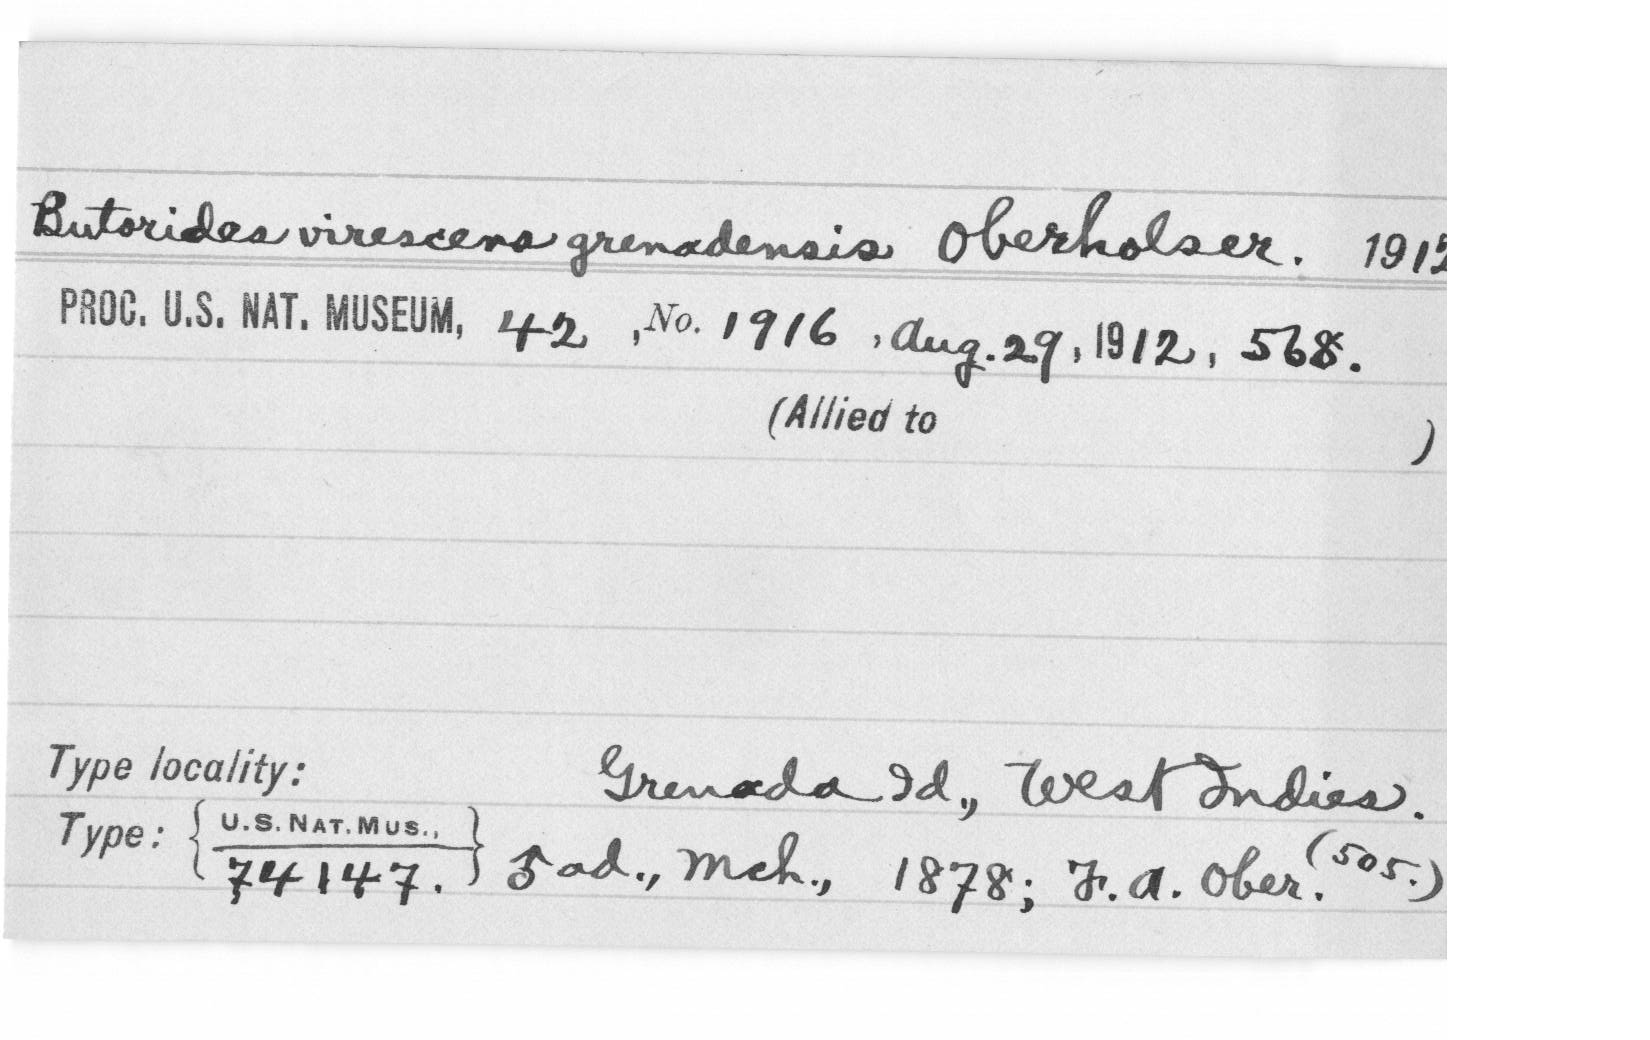 Butorides virescens grenadensis Oberholser. 1912
PROC. U.S. NAT. MUSEUM, 42, No. 1916, Aug. 29, 1912, 568.
(Allied to )
Type locality: Grenada Id., West Indies.
Type: { U.S. NAT. MUS., 74147. } ad., Mch., 1878; F. A. Ober. (505.)